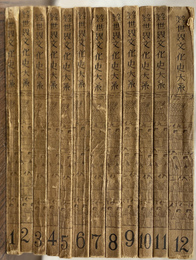 世界文化史大系
世界文化史大系
世界文化史大系
世界文化史大系
世界文化史大系
世界文化史大系
世界文化史大系
世界文化史大系
世界文化史大系
世界文化史大系
世界文化史大系
世界文化史大系
1 2 3 4 5 6 7 8 9 10 11 12